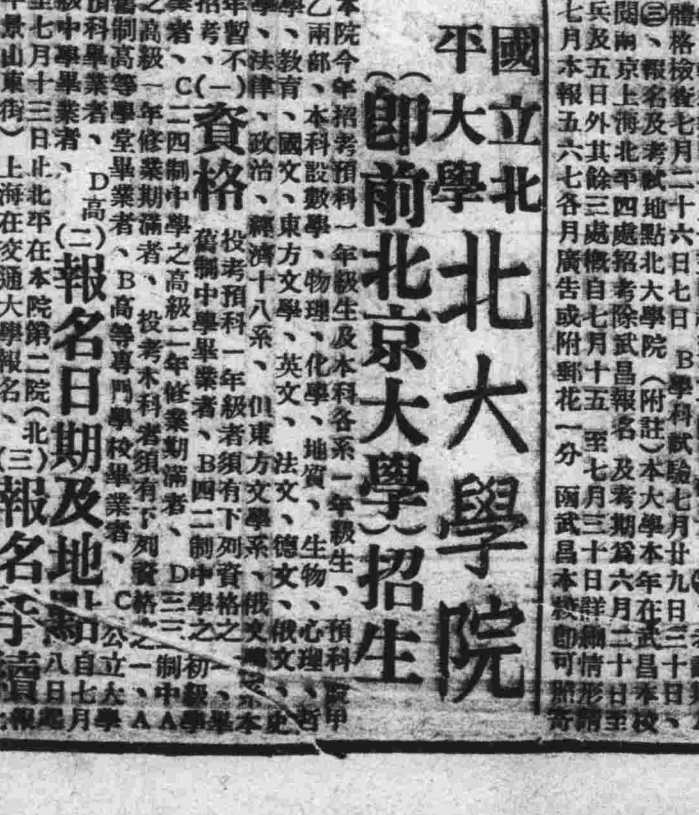 體格檢查七月二十六日七日　B學科試驗七月廿九日三十日、
㊂、報名及考試地點北大學院（附註）本大學本年在武昌本校
閱南京上海北平四處招考除武昌報名及考期爲六月二十日至
兵及五日外其餘三處概自七月十五至七月三十日詳細情形請
七月本報五六七各月廣告或附郵花一分函武昌本校即可照寄
國立北
平大學
北大學院
（即前北京大學）招生
本院今年招考預科一年級生及本科各系一年級生、預科 甲
乙兩部、本科設數學、物理、化學、地質、生物、心理、哲
學、教育、國文、東方文學、英文、法文、德文、俄文、史
學、法律、政治、經濟十八系、但東方文學系、俄文學系本
年暫不招考、
（一）資格
投考預科一年級者須有下列資格之一、A
舊制中學畢業者、B四二制中學之初級 畢
業者、C二四制中學之高級二年修業期滿者、D三三制中
之高級一年修業期滿者、投考本科者須有下列資格之一、A
舊制高等學堂畢業者、B高等專門學校畢業者、C公立大學
預科畢業者、D高級中學畢業者、
（二）報名日期及地點
自七月八日起
至七月十三日止北平在本院第二院（北
景山東街）上海在交通大學報名、
（三）報名手續